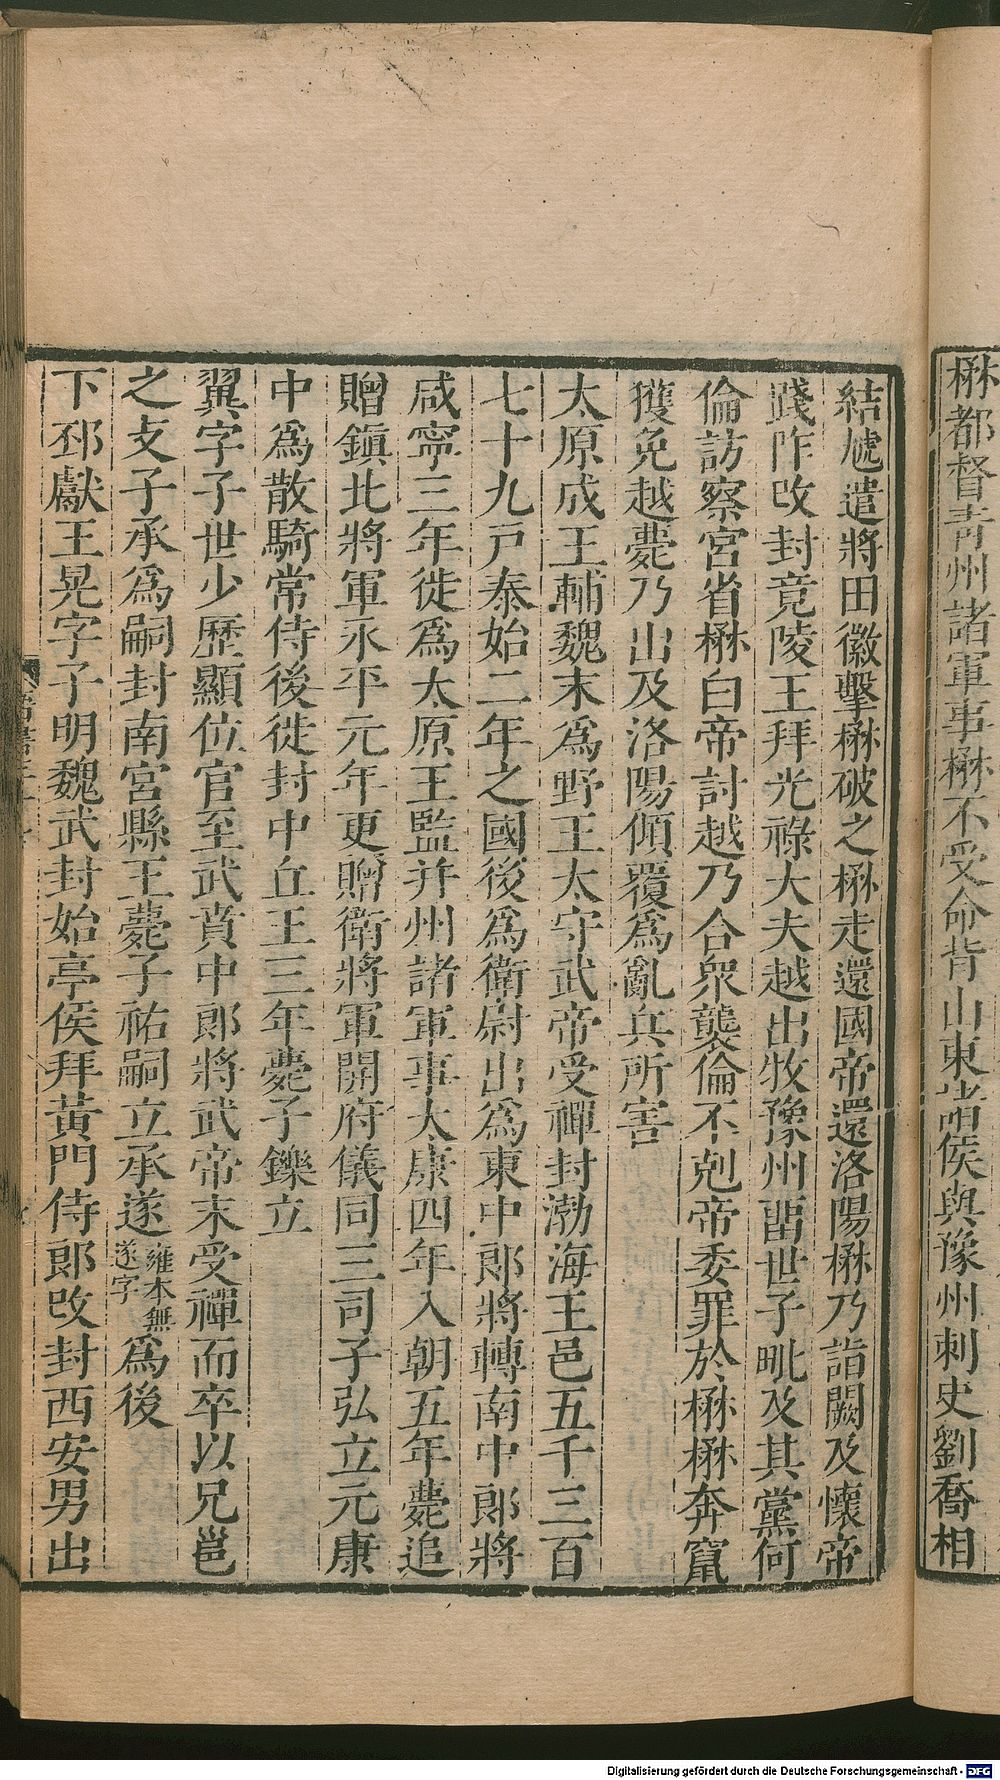 楙都督青州諸軍事楙不受命背山東諸侯與豫州刺史劉喬相
結虓遣將田徽擊楙破之楙走還國帝還洛陽楙乃詣闕及懷帝
踐阼改封竟陵王拜光祿大夫越出牧豫州畱世子毗及其黨何
倫訪察宮省楙白帝討越乃合衆襲倫不剋帝委罪於楙楙奔竄
獲免越薨乃出及洛陽傾覆爲亂兵所害
太原成王輔魏末爲野王太守武帝受禪封渤海王邑五千三百
七十九戸泰始二年之國後爲衛尉出爲東中郎將轉南中郎將
咸寧三年徙爲太原王監并州諸軍事太康四年入朝五年薨追
贈鎮北將軍永平元年更贈衛將軍開府儀同三司子弘立元康
中爲散騎常侍後徙封中丘王三年薨子鑠立
翼字子世少歷顯位官至武賁中郎將武帝末受禪而卒以兄邕
之支子承爲嗣封南宮縣王薨子祐嗣立承遂雍本無遂字爲後
下邳獻王晃字子明魏武封始亭侯拜黃門侍郎改封西安男出
Digitalisierung gefördert durch die Deutsche Forschungsgemeinschaft - DFG